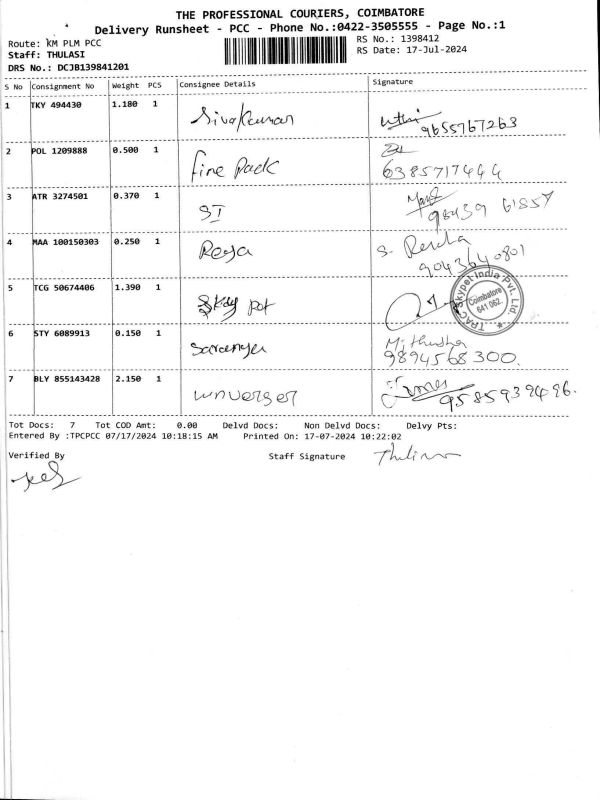 THE PROFESSIONAL COURIERS, COIMBATORE
Delivery Runsheet - PCC - Phone No.:0422-3505555 - Page No.:1
Route: KM PLM PCC
RS No.: 1398412
Staff: THULASI
RS Date: 17-Jul-2024
DRS No.: DCJB139841201
S No Consignment No Weight PCS Consignee Details Signature
1 TKY 494430 1.180 1 Sivakumar
9655767263
2 POL 1209888 0.500 1 Fine Pack
6385717444
3 ATR 3274501 0.370 1 SI
98439 61557
4 MAA 100150303 0.250 1 Roja S. Rekha
9043640801
5 TCG 50674406 1.390 1 pot
TPAC Skypet India Pvt. Ltd.
Coimbatore
641 062.
6 STY 6089913 0.150 1 Saranya Mithusha
9894568300.
7 BLY 855143428 2.150 1
Tot Docs: 7 Tot COD Amt: 0.00 Delvd Docs: Non Delvd Docs: Delvy Pts:
Entered By :TPCPCC 07/17/2024 10:18:15 AM Printed On: 17-07-2024 10:22:02
Verified By Staff Signature